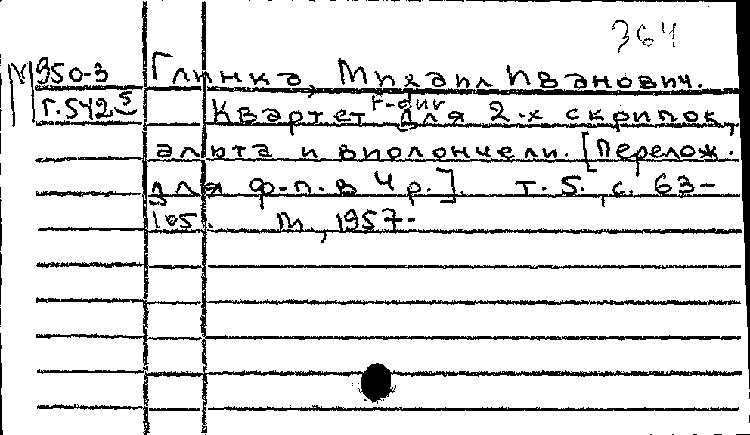 364
М950-3 Глинка, Михаил Иванович.
Г.542 5 Квартет F-dur для 2-х скрипок,
альта и виолончели. [Перелож.
для ф-п. в 4 р.]. т. 5, с. 63-
105. М., 1957.